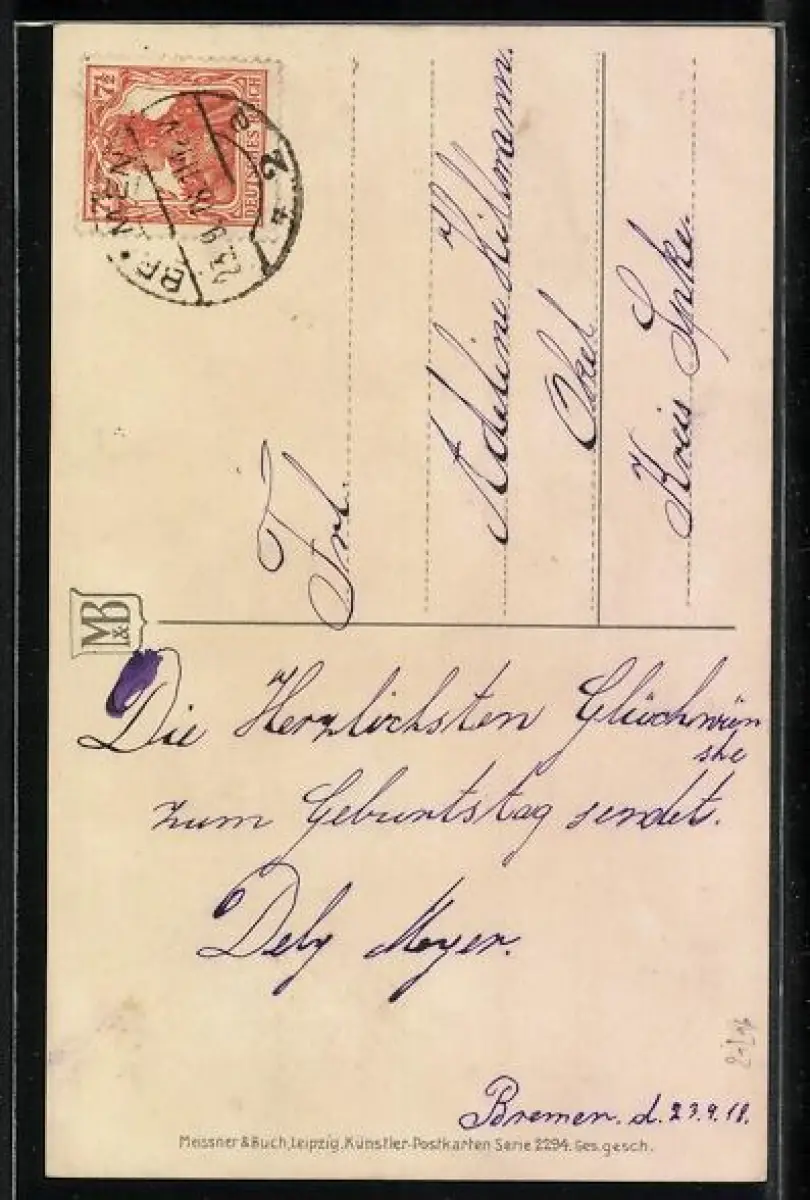 7½
DEUTSCHES REICH
BREMEN
23.9.18.11-12V.
* 2 a
Frl.
Adeline Hillmann.
Okel
Kreis Syke.
M&B
Die Herzlichsten Glückwün
she
zum Geburtstag sendet.
Dely Meyer.
Bremen. d. 23.9.18.
Meissner & Buch, Leipzig. Künstler-Postkarten Serie 2294. Ges. gesch.